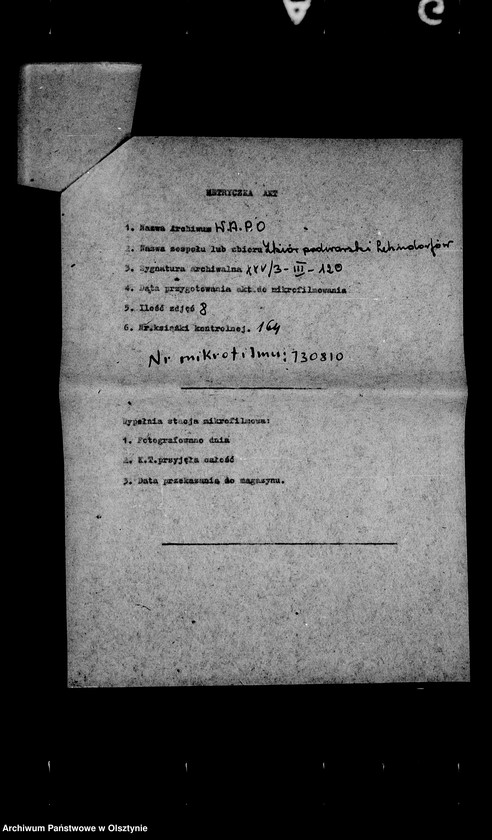 METRYCZKA AKT
1. Nazwa Archiwum W.A.P.O
2. Nazwa zespołu lub zbioru Zbiór podworski Lehndorfów
3. Sygnatura archiwalna XXV/3-III-120
4. Data przygotowania akt do mikrofilmowania
5. Ilość zdjęć 8
6. Nr.książki kontrolnej. 164
Nr mikrofilmu: 730810
Wypełnia stacja mikrofilmowa:
1. Fotografowano dnia
2. K.T.przyjęła całość
3. Data przekazania do magazynu.
Archiwum Państwowe w Olsztynie